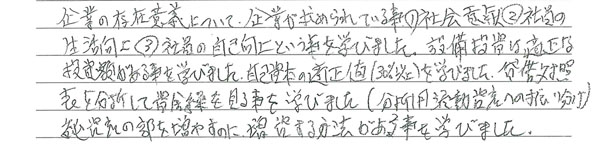 企業の存在意義について、企業が求められている事①社会貢献②社員の
生活向上③社員の自己向上という事を学びました。設備投資は適正な
投資額がある事を学びました。自己資本の適正値(30%以上)を学びました。貸借対照
表を分析して資金繰を見る事を学びました(分析用流動資産への振り分け)
純資産の部を増やすのに、増資する方法がある事を学びました。